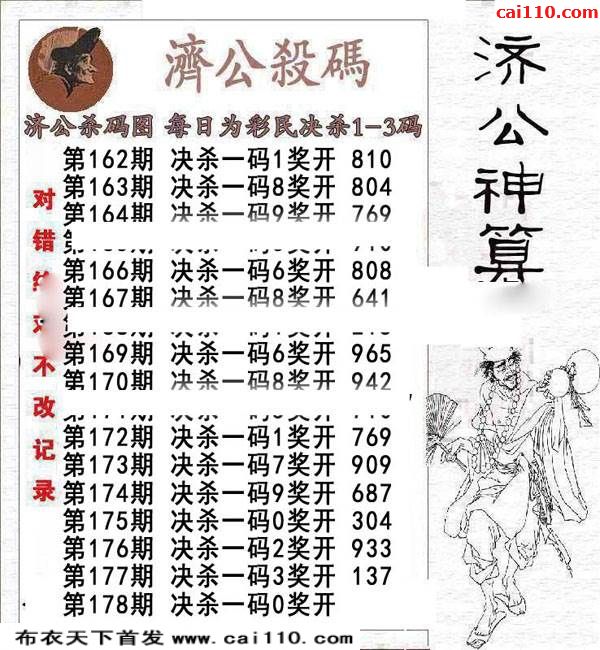 cai110.com
濟公殺碼
济公杀码图 每日为彩民决杀1-3码
第162期 决杀一码1奖开 810
第163期 决杀一码8奖开 804
第164期 决杀一码9奖开 769
第166期 决杀一码6奖开 808
第167期 决杀一码8奖开 641
第169期 决杀一码6奖开 965
第170期 决杀一码8奖开 942
第172期 决杀一码1奖开 769
第173期 决杀一码7奖开 909
第174期 决杀一码9奖开 687
第175期 决杀一码0奖开 304
第176期 决杀一码2奖开 933
第177期 决杀一码3奖开 137
第178期 决杀一码0奖开
对错
不改记录
济公神算
布衣天下首发 www.cai110.com